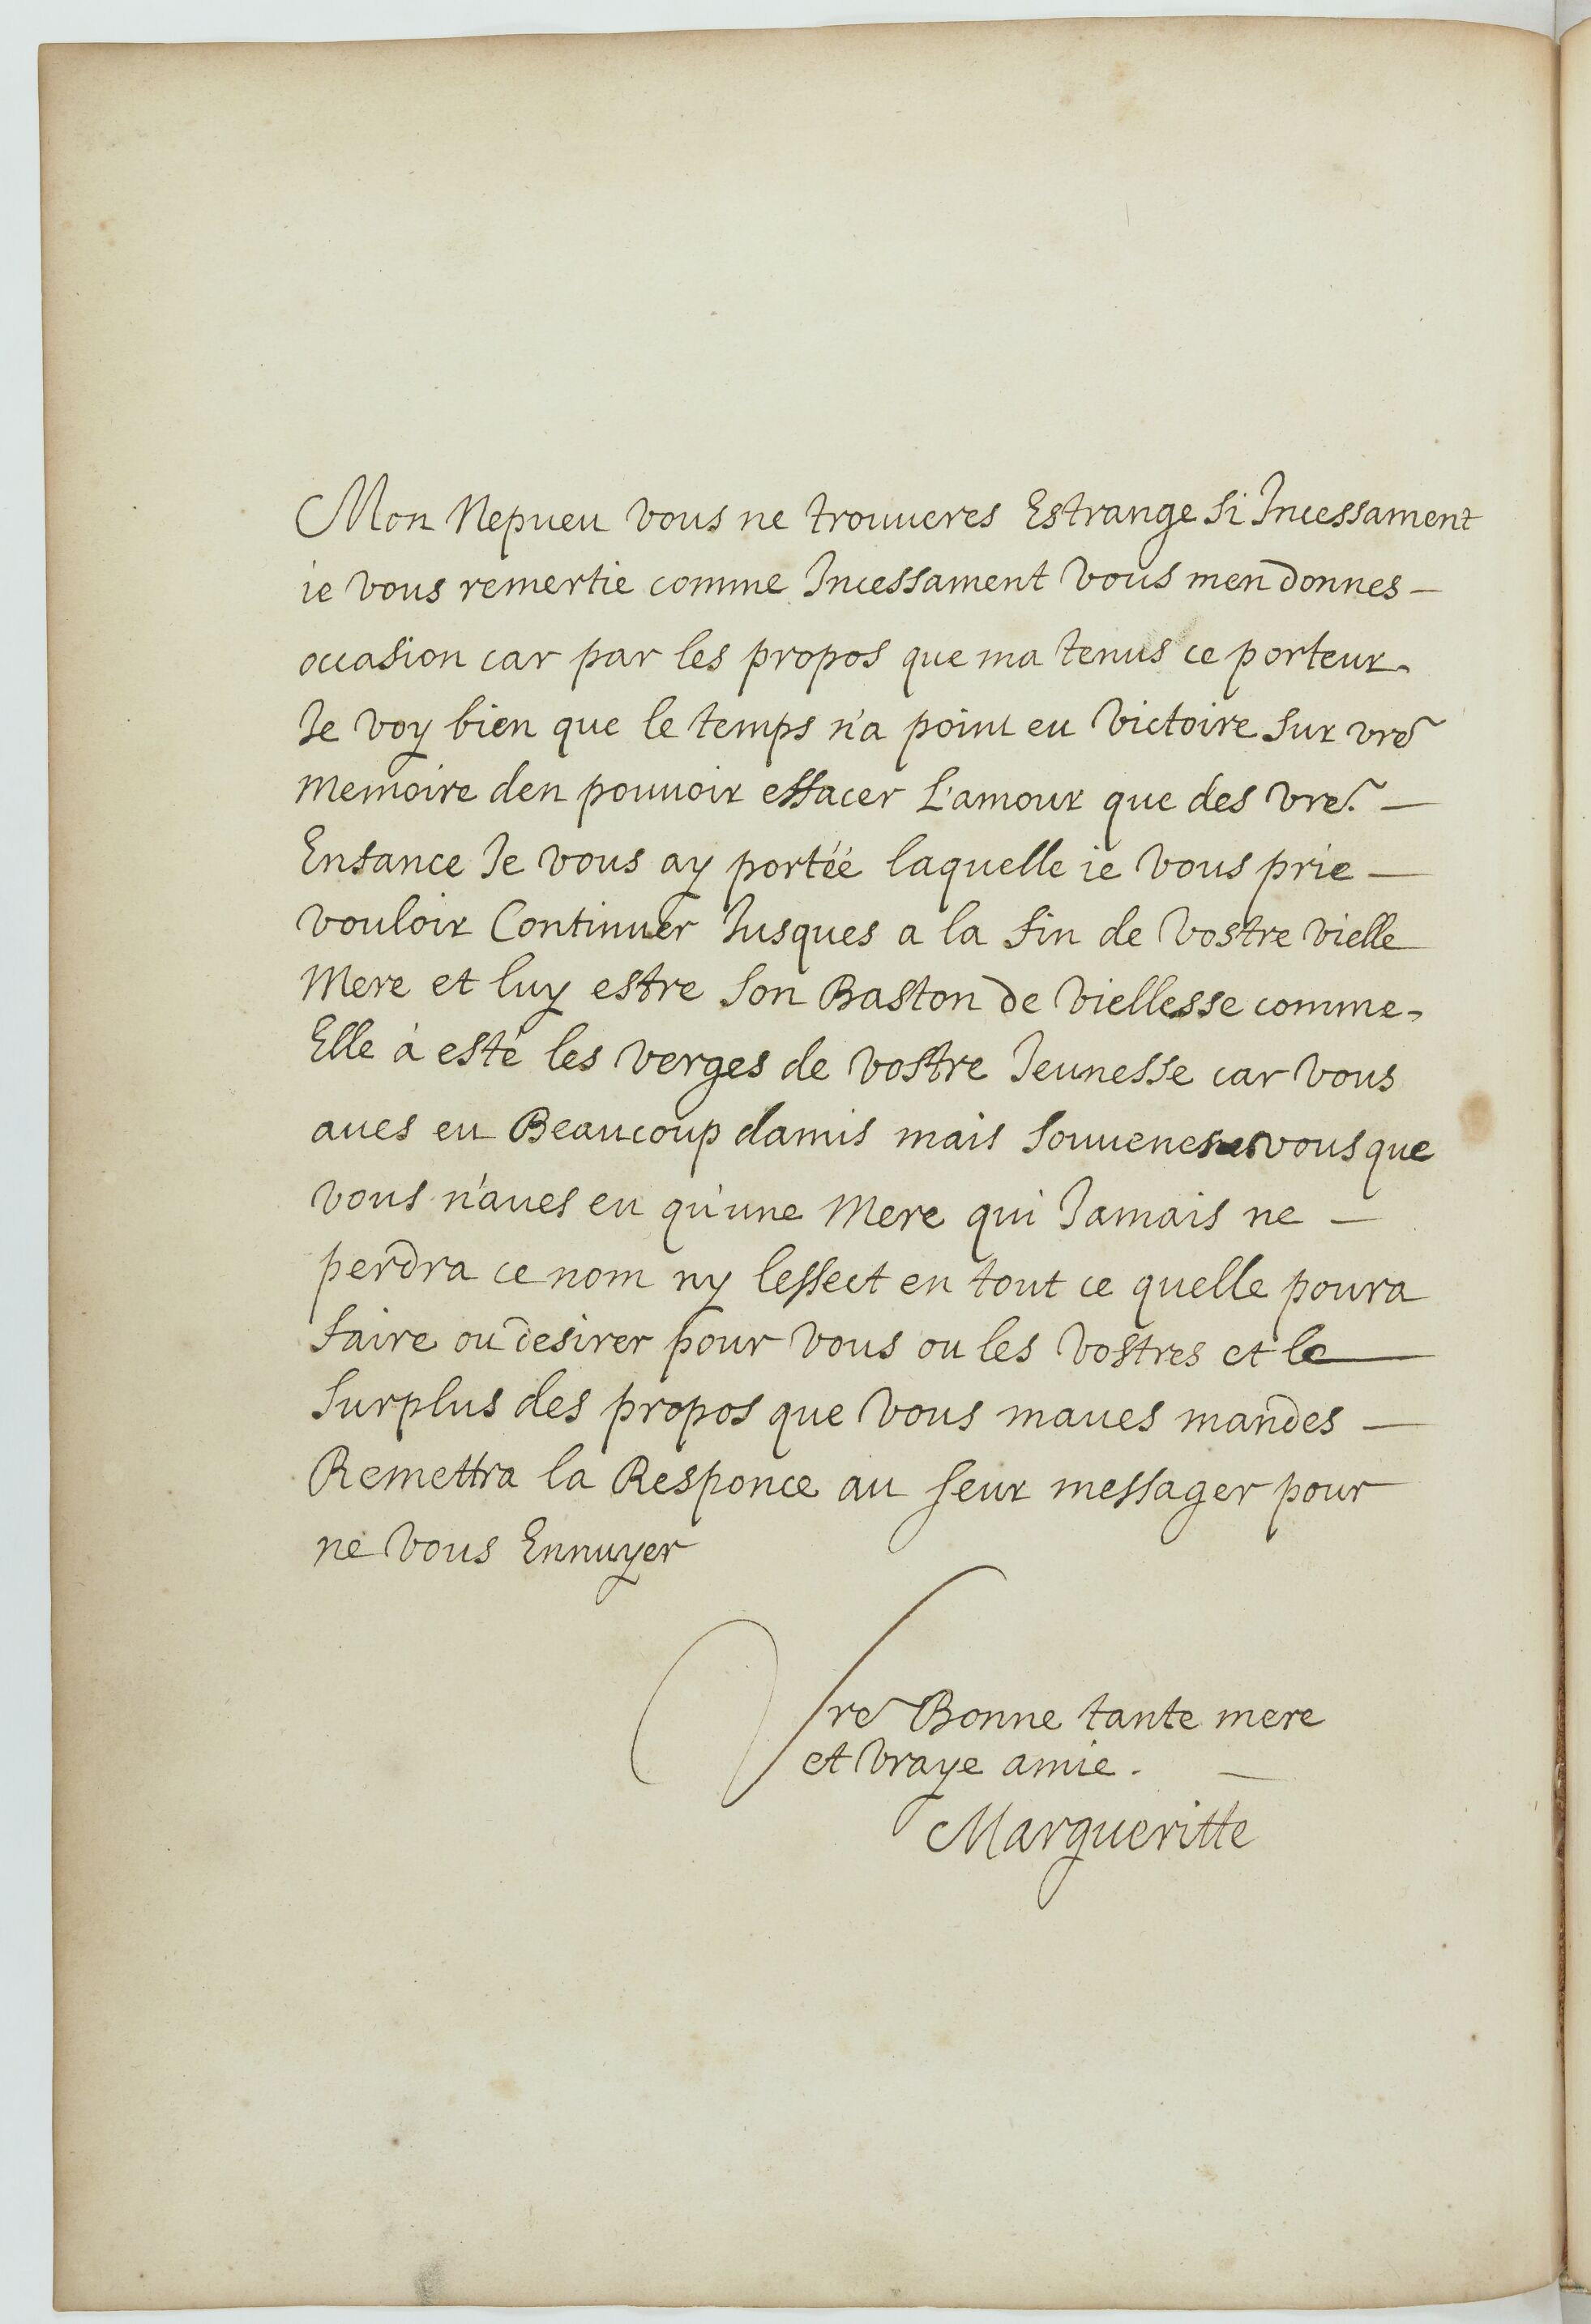 Mon Nepueu vous ne trouueres Estrange si Incessament
ie vous remertie comme Incessament vous men donnes —
occasion car par les propos que ma tenus ce porteur
Je voy bien que le temps n'a point eu victoire sur vre
Memoire den pouuoir effacer L'amour que des vre. —
Enfance Je vous ay portéé laquelle ie vous prie —
vouloir Continuer Jusques a la fin de vostre vielle
Mere et luy estre son Baston de viellesse comme
Elle à esté les verges de vostre Jeunesse car vous
aues eu Beaucoup damis mais souuenes vous que
vous n'aues eu qu'une Mere qui Jamais ne —
perdra ce nom ny leffect en tout ce quelle poura
faire ou desirer pour vous ou les vostres et le
surplus des propos que vous maues mandes —
Remettra la Responce au seur messager pour
ne vous Ennuyer
Vre Bonne tante mere
et vraye amie. —
Margueritte